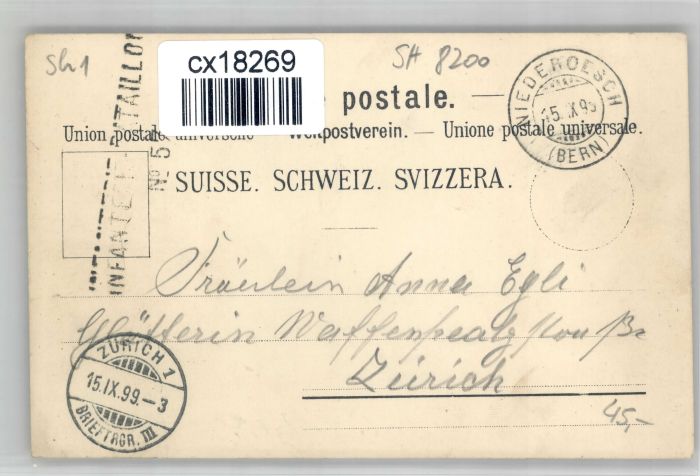 Sh 1
cx18269
SH 8200
postale. —
NIEDEROESCH
15.IX.99
(BERN)
Union postale universelle — Weltpostverein. — Unione postale universale.
INFANTERIE-BATAILLON
INFANTERIE
No 5
SUISSE. SCHWEIZ. SVIZZERA.
Fräulein Anna Egli
Glätterin Waffenplatz
Zürich
ZÜRICH 1
15.IX.99.–3
BRIEFTRGR. III
45,-